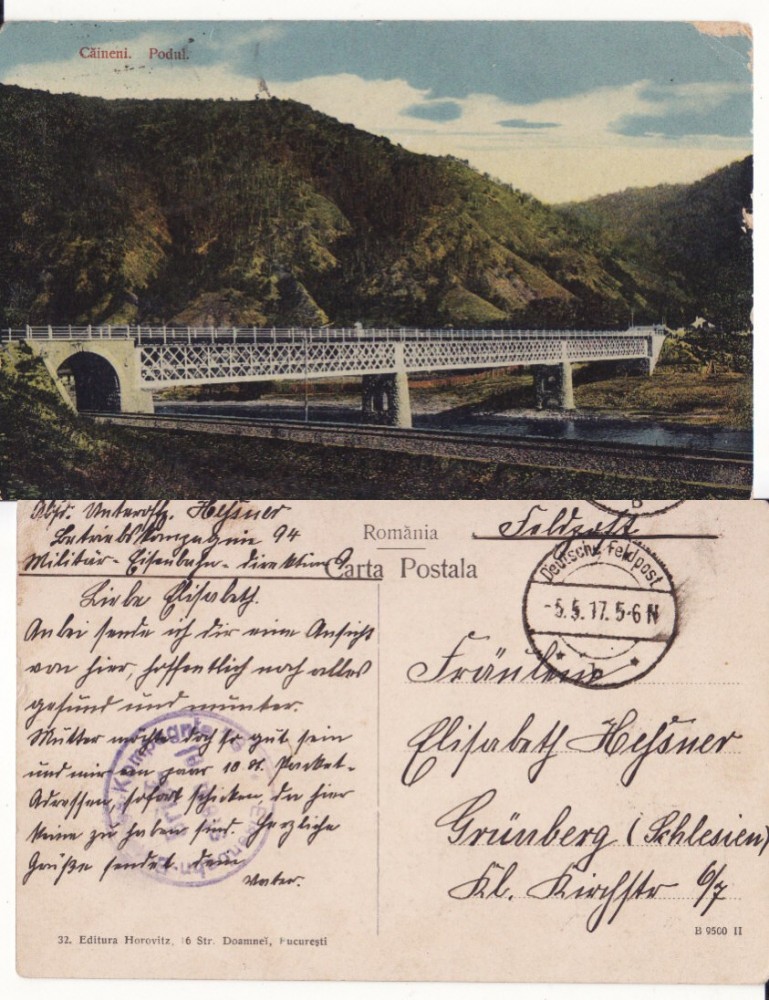 Căineni. Podul.
Absd. Unteroffz. Hessner
Betriebskompagnie 94
Militär-Eisenbahn-direktion 9
România
Carta Postala
Feldpost
Deutsche Feldpost
-5.5.17.5-6N
* b *
Liebe Elisabeth.
Anbei sende ich dir eine Ansicht
von hier, hoffentlich noch alles
gesund und munter.
Mutter möchte doch so gut sein
und mir ein paar 10 St. Packet-
Adressen, sofort schicken, da hier
keine zu haben sind. Herzliche
Grüße sendet dein
Vater.
Fräulein
Elisabeth Hessner
Grünberg (Schlesien)
Kl. Kirchstr 6/7
32. Editura Horovitz, 16 Str. Doamneĭ, Bucureşti
B 9500 II